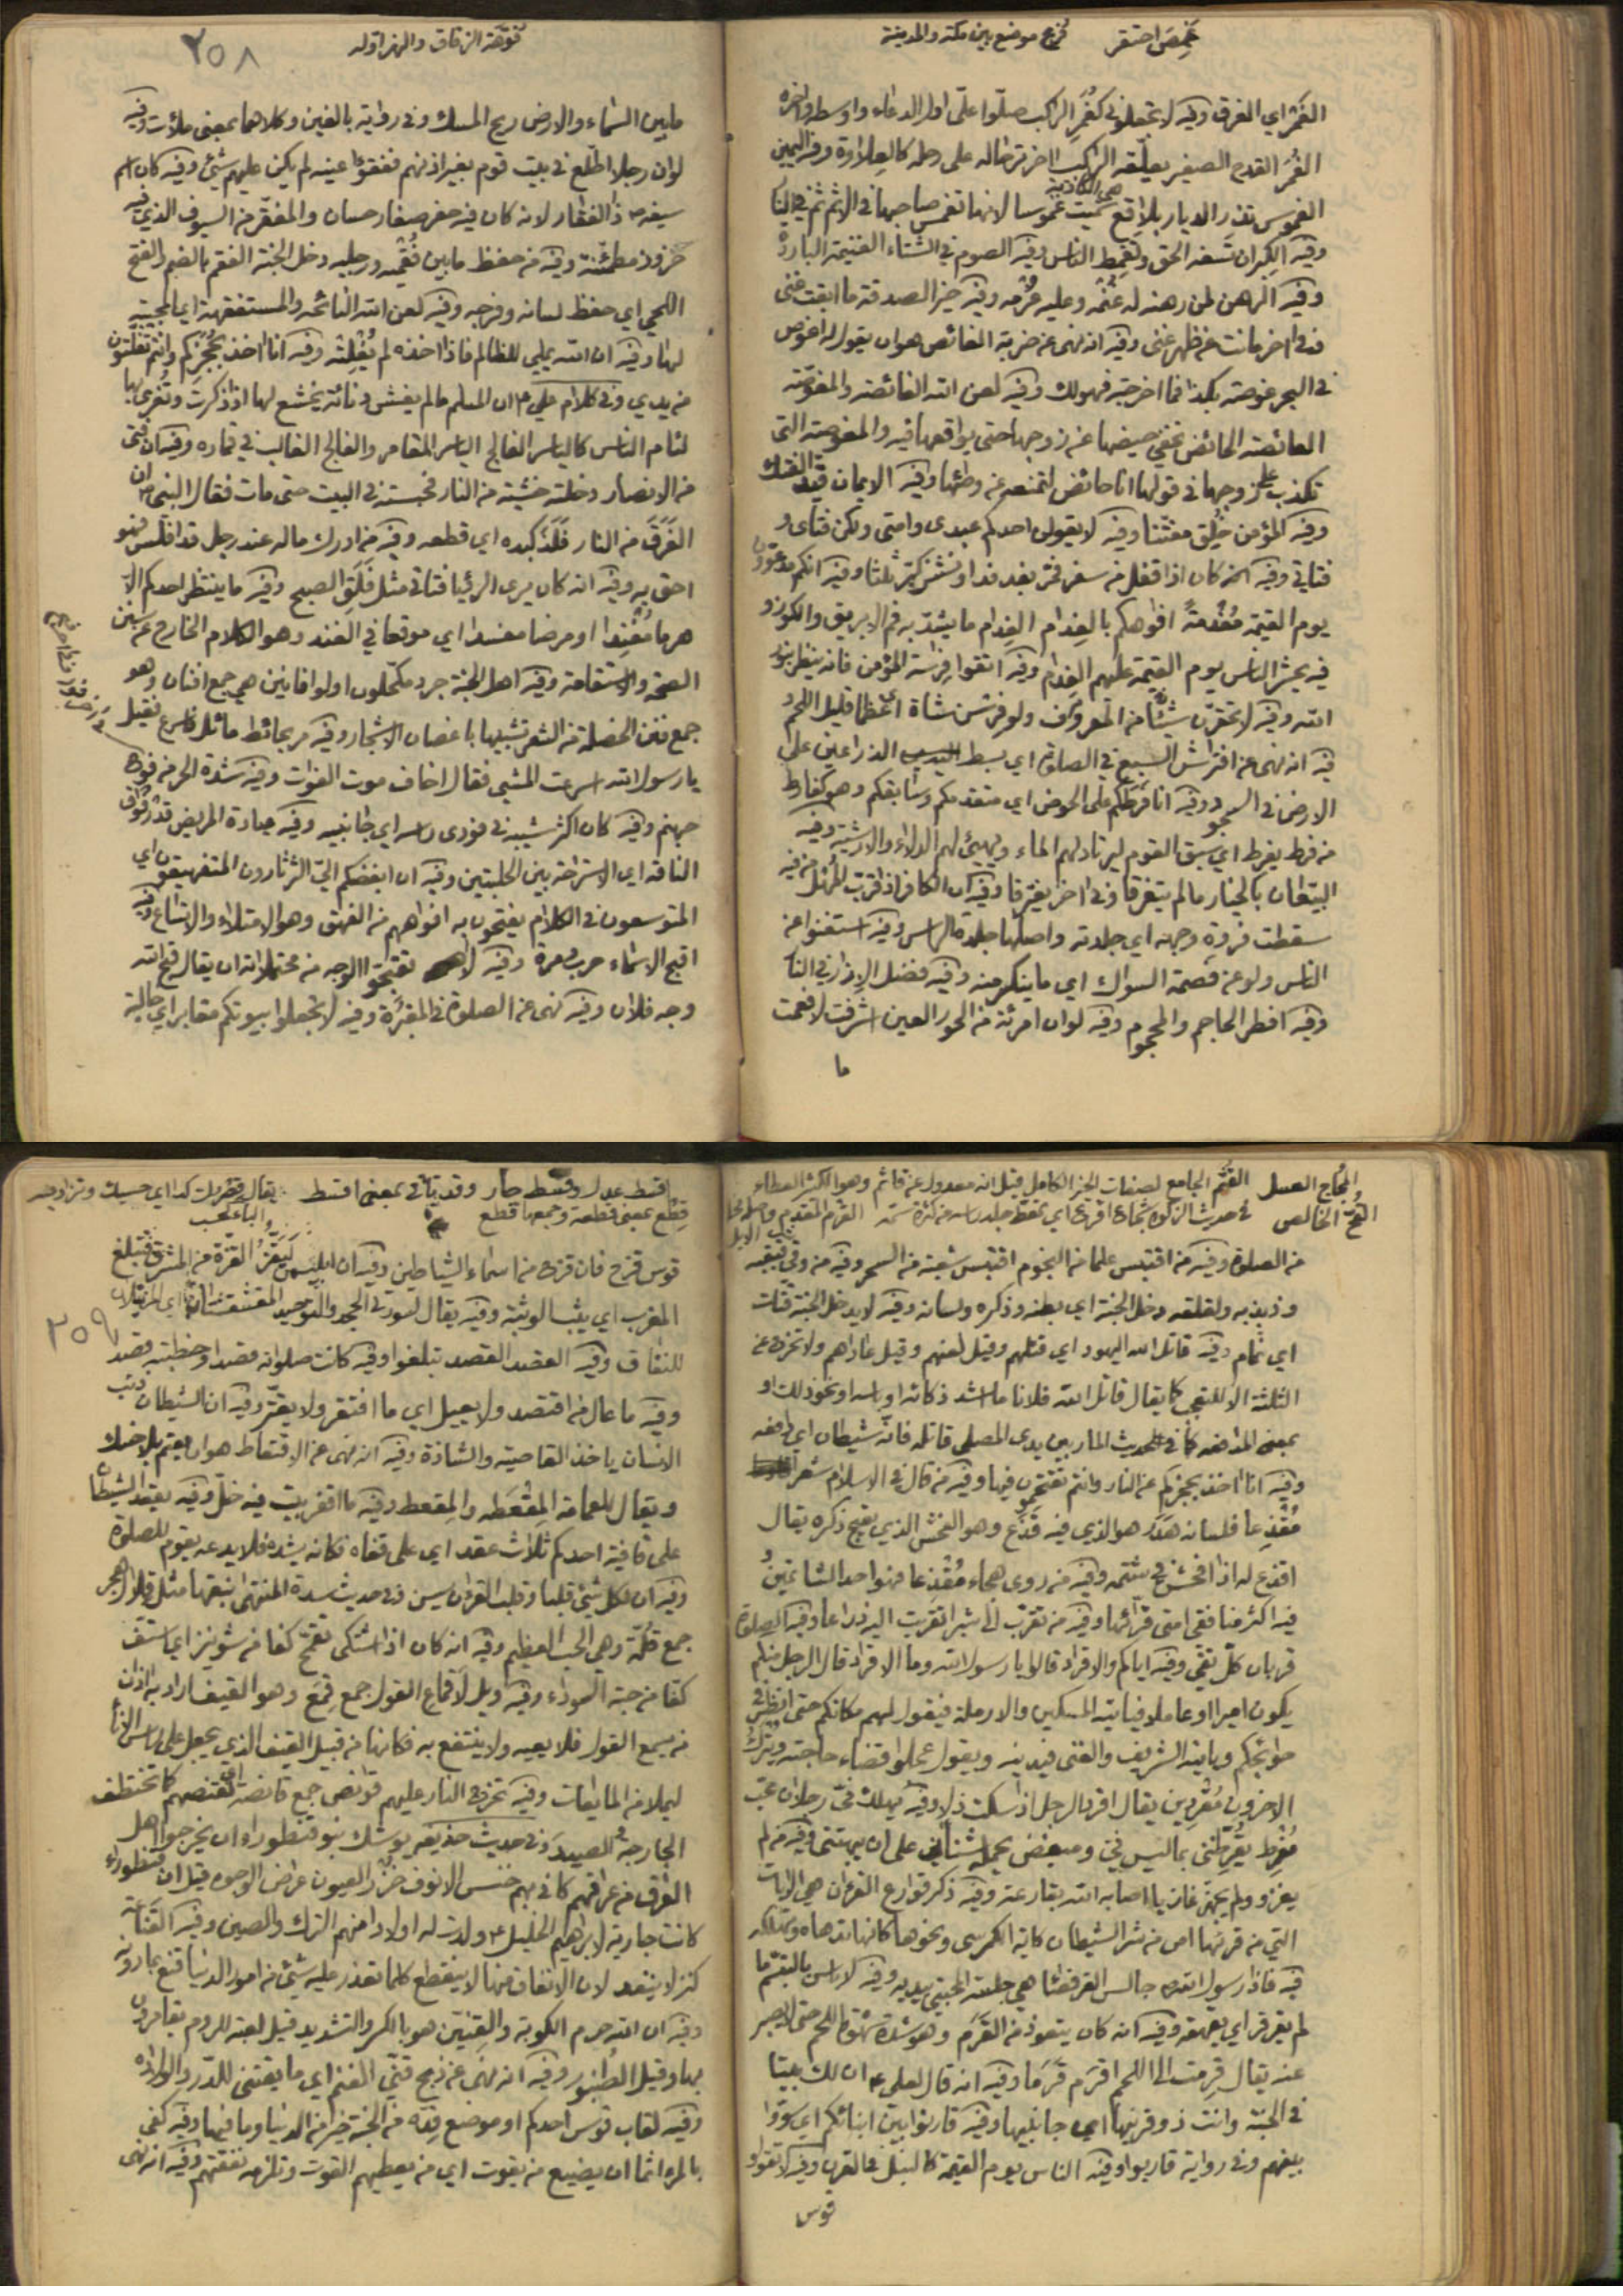 غَمِصَ احتقر فُرع موضع بين مكة والمدينة
الغَمَر اي الغرق وفيه لا تجعلوني كغُمَر الراكب صلّوا علىّ اول الدعاء واوسطه واخره
الغُمَر القدح الصغير يعلّقه الراكب اخر ترحاله على رحله كالعِلاوة وفيه اليمين
الغموس تذر الديار بلاقع سُمّيت غموسا لانها تغمس صاحبها في الاثم ثم في النا
هي الكاذبة
وفيه الكبر ان تَسفه الحق وتَغمِط الناس وفيه الصوم في الشتاء الغنيمة الباردة
وفيه الرهن لمن رهنه له غُنْمُه وعليه غُرْمه وفيه خير الصدقة ما ابقت غنى
وفي اخر ما كانت عن ظهر غنى وفيه انه نهى عن ضربة الغائص هو ان يقول له اغوص
في البحر غوصة بكذا فما اخرجته فهو لك وفيه لعن الله الغائصة والمغوّصة
الغائصة الحائض تخفي حيضها عن زوجها حتى يواقعها فيه والمغوصة التي
تكذب على زوجها في قولها انا حائض لتمنعه عن وطئها وفيه الايمان قَيد الفتك
وفيه المؤمن خُلِق مفتّنا وفيه لا يقولن احدكم عبدى وامتى ولكن فتاى و
فتاتي وفيه انه كان اذا قفل من سفر فمرّ بفدفد او نشز كبّر ثلثا وفيه انكم مدعوون
يوم القيمة مُفَدّمةً افواهكم بالفِدام الفِدام ما يشدّ به فم الابريق والكوز و
فيه يحشر الناس يوم القيمة عليهم الفِدام وفيه اتقوا فراسة المؤمن فانه ينظر بنور
الله وفيه لا تحقرنّ شيئا من المعروف ولو فرسن شاة اي عظما قليل اللحم و
فيه انه نهى عن افتراش السبع في الصلوة اي بسط الذراعين على
الارض في السجود وفيه انا فَرَطكم على الحوض اي متقدمكم وسابقكم وهو كفارط
من فرط يفرط اي سبق القوم ليرتاد لهم الماء ويهيئ لهم الدلاء والارشية وفيه
البيّعان بالخيار ما لم يتفرقا وفي اخر يفترقا وفيه ان الكافر اذا قرب المُهل من فيه
سقطت فروة وجهه اي جلدته واصلها جلدة الراس وفيه استغنوا عن
الناس ولو عن فصمة السواك اي ما ينكسر منه وفيه فضل الازار في النا
وفيه افطر الحاجم والمحجوم وفيه لو ان امرئة من الحور العين اشرفت لافعمت
ما
فُوّهة الزقاق والنهر اوّله
٢٥٨
ما بين السماء والارض ريح المسك وفي رواية بالغين وكلاهما بمعنى ملأت وفيه
لو ان رجلا اطّلع في بيت قوم بغير اذنهم ففقؤا عينه لم يكن عليهم شيئ وفيه كان اسم
سيفه ذا الفقار لانه كان فيه حفر صغار حسان والمفقّر من السيوف الذي فيه
حزوز مطمئنة وفيه من حفظ ما بين فُقْميه ورجليه دخل الجنة الفقم بالضم والفتح
اللحي اي حفظ لسانه وفرجه وفيه لعن الله النائحة والمستفقهة اي المجيبة
لها وفيه ان الله يملي للظالم فاذا اخذه لم يُفْلِته وفيه انا اخذ بحُجَزكم وانتم تفلّتون
من يدي وفي كلام علي ان المسلم ما لم يغش دنائة يخشع لها اذا ذكرت وتُغرى بها
لئام الناس كالياسر الفالج الياسر المقامر والفالج الغالب في قماره وفيه ان فتى
من الانصار دخلته خشية من النار فحبسته في البيت حتى مات فقال النبي ان
الفَرَق من النار فلَذَ كبده اي قطعه وفيه من ادرك ماله عند رجل قد افلس فهو
احق به وفيه انه كان يرى الرئيا فتاتي مثل فَلَق الصبح وفيه ما ينتظر احدكم الا
هرما مُفْنِدا او مرضا مفسدا اي موقعا في الفند وهو الكلام الخارج عن سنن
الصحة والاستقامة وفيه اهل الجنة جرد مكحّلون اولوا افانين هي جمع افنان وهو
جمع فنن الخصلة من الشعر تشبيها باغصان الاشجار وفيه مر بحائط مائل فاسرع فقيل
يا رسول الله اسرعت المشي فقال اخاف موت الفوات وفيه شدة الحر من فوح
جهنم وفيه كان اكثر شيبه في فودى راسه اي جانبيه وفيه عيادة المريض قدر فُوَاق
الناقة اي الاستراحة بين الحلبتين وفيه ان ابغضكم اليّ الثرثارون المتفيهقون اي
المتوسعون في الكلام يفتحون به افواههم من الفهق وهو الامتلاء والاتساع وفيه
اقبح الاسماء حرب ومرة وفيه لا تقبّحوا الوجه من محتملاته ان يقال قبح الله
وجه فلان وفيه نهى عن الصلوة في المقبُرة وفيه لا تجعلوا بيوتكم مقابر اي خالية
المُجاج العسل القُثَم الجامع لصفات الخير الكامل قيل انه معدول عن قاثم وهو الكثير العطاء
القُحّ الخالص في حديث الزكوة شجاعا اقرع اي تمعّط جلد راسه من كثرة سمّه القَرْم المقدم
من الصلوة وفيه من اقتبس علما من النجوم اقتبس شعبة من السحر وفيه من وقي قبقبه
وذبذبه ولقلقه دخل الجنة اي بطنه وذكره ولسانه وفيه لا يدخل الجنة قتّات
اي نمّام وفيه قاتل الله اليهود اي قتلهم وقيل لعنهم وقيل عاداهم ولا تخرج عن
الثلثة الا للتعجب كما يقال قاتل الله فلانا ما اشد ذكائه او باسه او نحو ذلك او
بمعنى المدافعة كما في الحديث المار بين يدى المصلى قاتله فانه شيطان اي دافعه
وفيه انا اخذ بحجزكم عن النار وانتم تقتحمون فيها وفيه من قال في الاسلام شعرا
مُقْذِعا فلسانه هَدَر هو الذي فيه قَذَع وهو الفحش الذي يقبح ذكره يقال
اقذع له اذا افحش في شتمه وفيه من روى هجاء مُقْذعا فهو احد الشاتمين و
فيه اكثر منافقى امتى قرائها وفيه من تقرّب اليّ شبرا تقربت اليه ذراعا وفيه الصلوة
قربان كلّ تقي وفيه اياكم والاقراد قالوا يا رسول الله وما الاقراد قال الرجل منكم
يكون اميرا او عاملا فياتيه المسكين والارملة فيقول لهم مكانكم حتى انظر في
حوائجكم وياتيه الشريف والغنى فيدنيه ويقول عجلوا قضاء حاجته ويترك
الاخرون مُقْرِدين يقال اقرد الرجل اذا سكت ذلا وفيه يهلك فيّ رجلان محبّ
مُفْرِط يقرّظني بما ليس فيّ ومبغض يحمله شنأني على ان يبهتني وفيه من لم
يغزو ولم يجهّز غازيا اصابه الله بقارعة وفيه ذكر قوارع القرءان هي الايات
التي من قرئها امن من شر الشيطان كاية الكرسي ونحوها كانها تدهاه وتهلكه
فيه فاذا رسول الله جالس القرفصا هي جلسة المحتبي بيديه وفيه لا باس بالتبسّم ما
لم يقرقر اي يقهقه وفيه انه كان يتعوذ من القَرَم وهو شدة شهوة اللحم حتى لا يصبر
عنه يقال قرِمت الى اللحم اقرَم قَرَما وفيه انه قال لعلي ان لك بيتا
في الجنة وانت ذو قرنيها اي جانبيها وفيه قارنوا بين ابنائكم اي سوّوا
بينهم وفي رواية قاربوا وفيه الناس يوم القيمة كالنبل في القرن وفيه لا تقولوا
قوس
اقسط عدل وقسط جار وقد ياتى بمعنى اقسط
قِطَع بمعنى قطعة وجمعها قطع
٢٥٩
قوس قزح فان قزح من اسماء الشياطين وفيه ان ابليس لَيَقُزّ القزّة من المشرق فتبلغ
المغرب اي يثب الوثبة وفيه يقال لسورتي الجحد والتوحيد المقشقشتان اي المبرئتان
للنفاق وفيه القصد القصد تبلغوا وفيه كانت صلواته قصدا وخطبته قصدا
وفيه ما عال من اقتصد ولا يعيل اي ما افتقر ولا يفتقر وفيه ان الشيطان ذئب
الانسان ياخذ القاصية والشاذة وفيه انه نهى عن الاقتعاط هو ان يعتم بلا حنك
ويقال للعمامة المِقْعَطه والمِقعط وفيه ما اقفر بيت فيه خلّ وفيه يعقد الشيطان
على قافية احدكم ثلاث عقد اي على قفاه فكانه يشده فلا يدعه يقوم للصلوة
وفيه ان لكل شيئ قلبا وقلب القرءان يس وفي حديث سدرة المنتهى نبقها مثل قلال هجر
جمع قلّة وهي الحب العظيم وفيه انه كان اذا اشتكى تقمّح كفا من شونيز اي استف
كفا من حبة السوداء وفيه ويل لاَقماع القول جمع قِمَع وهو القيف اراد به اذان
من يسمع القول فلا يعيه ولا ينتفع به فكانها من قبيل القيف الذي يجعل على راس الانا
ليملا من المايعات وفيه تخرج النار عليهم قوانص جمع قانصة اي تقتنصهم كما تختطف
الجارحة الصيد وفي حديث حذيفه يوشك بنو قنطوراء ان يخرجوا اهل
العراق من عراقهم كاني بهم خنس الانوف خُزْر العيون عراض الوجوه قيل ان قنطوراء
كانت جارية لابراهيم الخليل ولدت له اولادا منهم الترك والصين وفيه القناعة
كنز لا ينفد لان الانفاق منها لا ينقطع كلما تعذر عليه شيئ من امور الدنيا قنع بما دونه
وفيه ان الله حرم الكوبة والقِنّين هو بالكسر والتشديد قيل لعبة للروم يقامرون
بها وقيل الطُنبور وفيه انه نهى عن ذبح قنيّ الغنم اي ما يقتنى للدّر والولد
وفيه لقاب قوس احدكم او موضع قِدّه من الجنة خير من الدنيا وما فيها وفيه كفى
بالمرء اثما ان يضيع من يقوت اي من يعطيهم القوت وتلزمه نفقتهم وفيه انه نهى